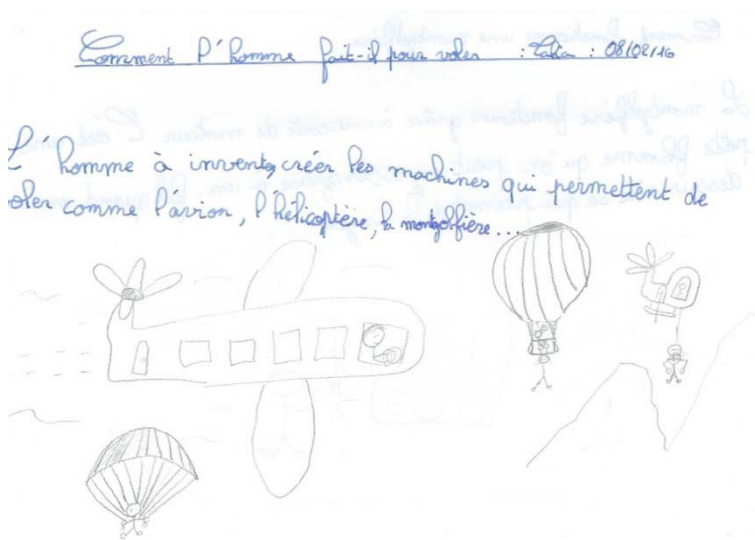 Comment l'homme fait-il pour voler : : 08/02/16
L'homme à inventé, créer les machines qui permettent de
oler comme l'avion, l'hélicoptère, la montgolfière...